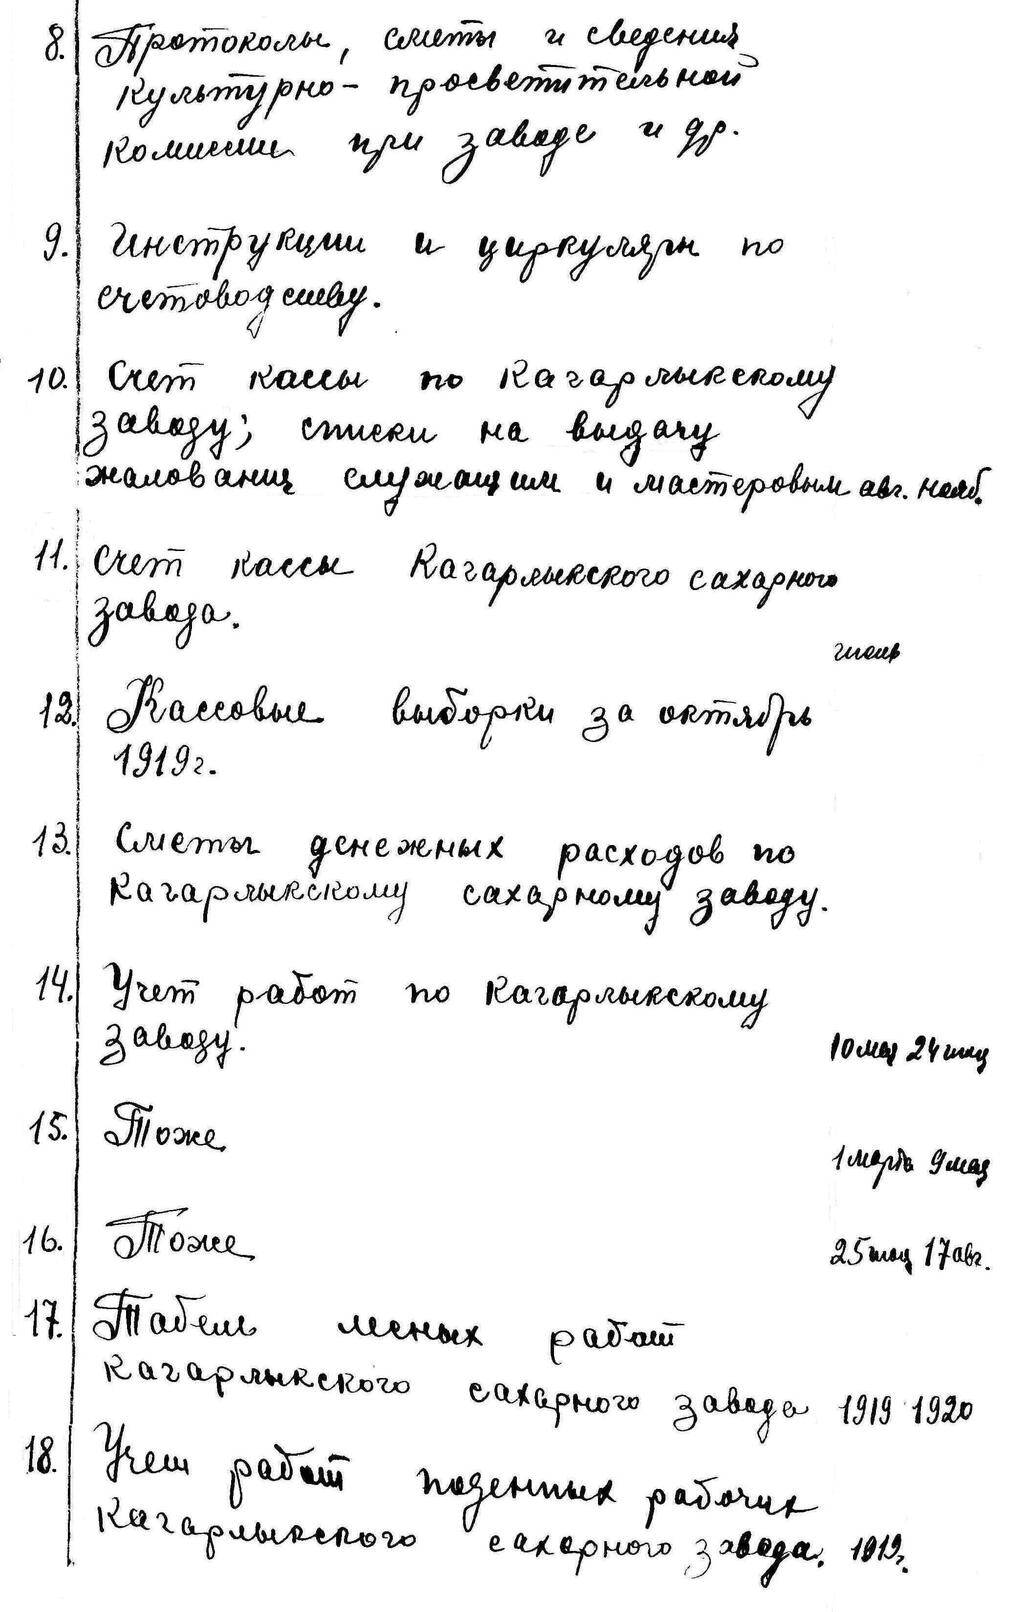 8. Протоколы, сметы и сведения
культурно-просветительной
комиссии при заводе и др.
9. Инструкции и циркуляры по
счетоводству.
10. Счет кассы по Кагарлыкскому
заводу; списки на выдачу
жалования служащим и мастеровым авг. нояб.
11. Счет кассы Кагарлыкского сахарного
завода.
июль
12. Кассовые выборки за октябрь
1919г.
13. Сметы денежных расходов по
Кагарлыкскому сахарному заводу.
14. Учет работ по Кагарлыкскому
заводу.
10 мая 24
15. Тоже
1 марта 9 мая
16. Тоже
25 17 авг.
17. Табель лесных работ
Кагарлыкского сахарного завода 1919 1920
18. Учет работ поденных рабочих
Кагарлыкского сахарного завода. 1919г.